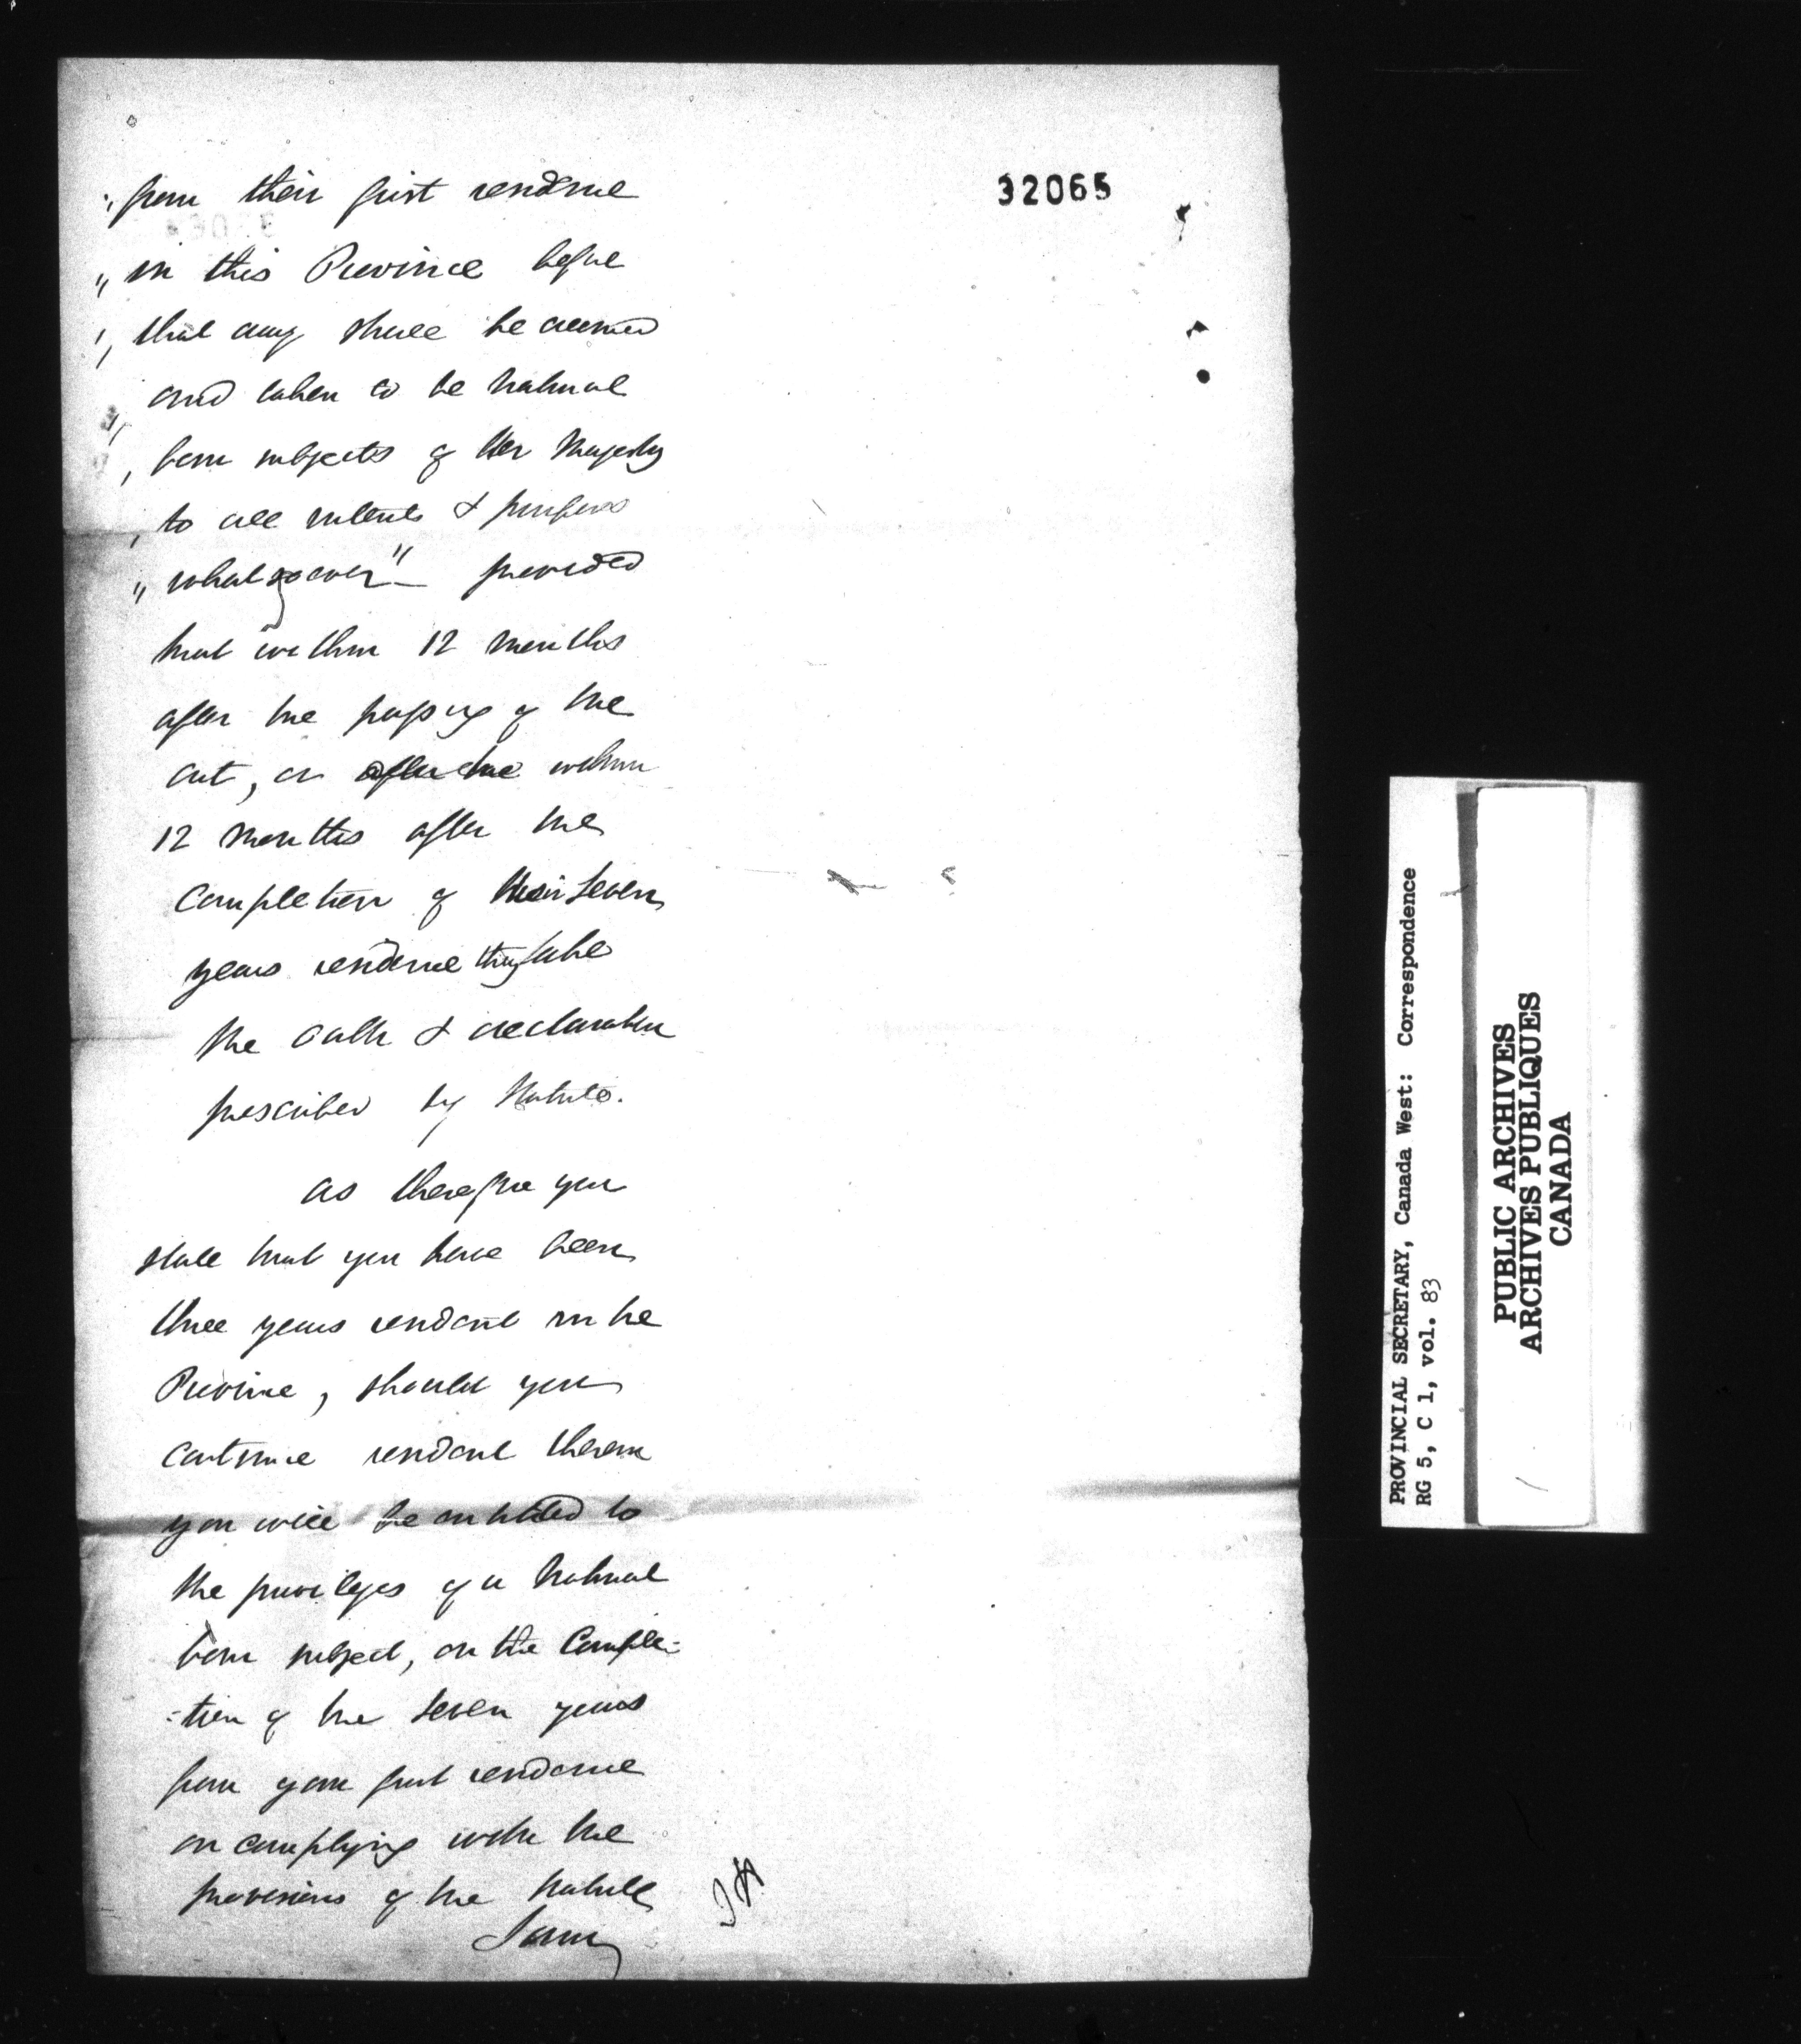 32065
"from their first residence
"in this Province before
"that day shall be deemed
"and taken to be natural
"born subjects of Her Majesty
"to all intents & purposes
"whatsoever" — provided
that within 12 months
after the passing of the
act, or after the within
12 months after the
completion of their seven
years residence they take
the oath & declaration
prescribed by Statute.
As therefore you
state that you have been
three years resident in the
Province, should you
continue resident therein
you will be entitled to
the privileges of a natural
born subject, on the comple=
=tion of the seven years
from your first residence
on complying with the
provisions of the Statute
I am
PROVINCIAL SECRETARY, Canada West: Correspondence
RG 5, C 1, vol. 83
PUBLIC ARCHIVES
ARCHIVES PUBLIQUES
CANADA